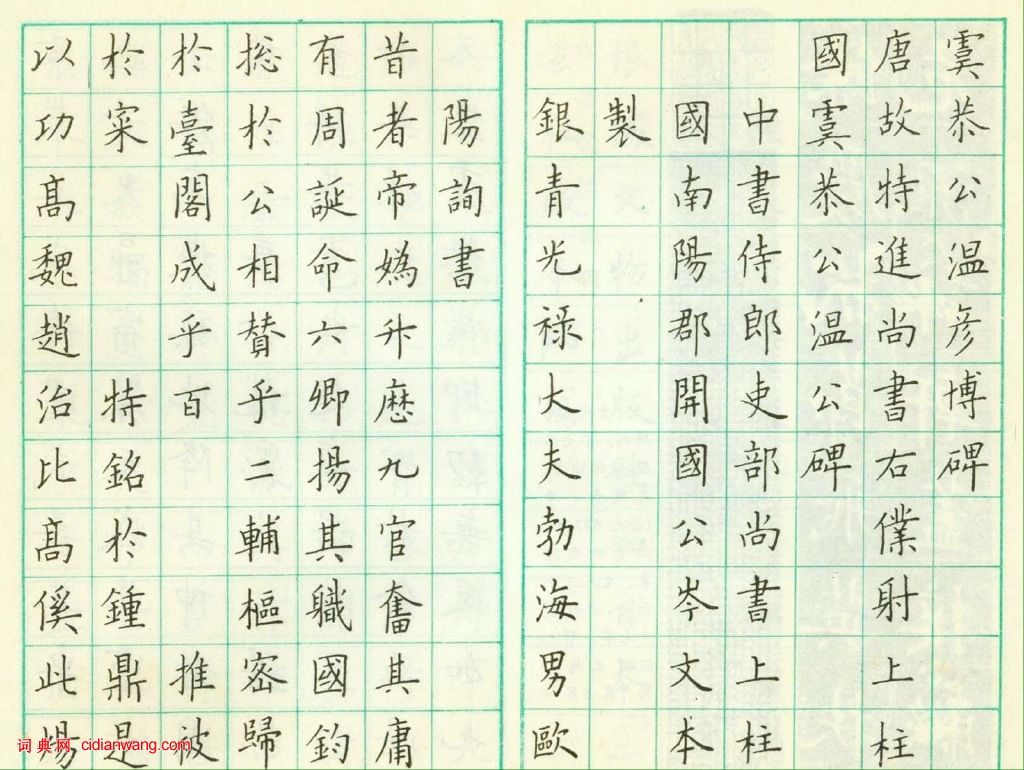 虞恭公温彦博碑
唐故特進尚書右僕射上柱
國虞恭公温公碑
中書侍郎吏部尚書上柱
國南陽郡開國公岑文本
製
銀青光祿大夫勃海男歐
陽詢書
昔者帝媯升厯九官奮其庸
有周誕命六卿揚其職國鈞
総於公相賛乎二輔樞密歸
於臺閣成乎百推被
於寀特銘於鍾鼎是
以功髙魏趙治比髙傒此
词典网 cidianwang.com